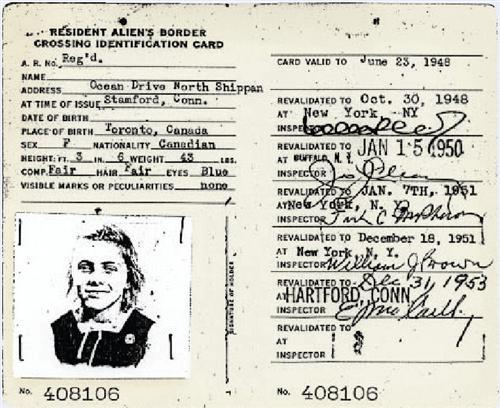 RESIDENT ALIEN'S BORDER
CROSSING IDENTIFICATION CARD
A. R. No. Reg'd.
NAME
ADDRESS Ocean Drive North Shippan
AT TIME OF ISSUE Stamford, Conn.
DATE OF BIRTH
PLACE OF BIRTH Toronto, Canada
SEX F NATIONALITY Canadian
HEIGHT: FT. 3 IN. 6 WEIGHT 43 LBS.
COMP. Fair HAIR Fair EYES Blue
VISIBLE MARKS OR PECULIARITIES none
SIGNATURE OF HOLDER
No. 408106
CARD VALID TO June 23, 1948
REVALIDATED TO Oct. 30, 1948
AT New York, NY
INSPECTOR
REVALIDATED TO JAN 15 1950
AT BUFFALO, N.Y.
INSPECTOR
REVALIDATED TO JAN. 7TH, 1951
AT New York, N. Y.
INSPECTOR
REVALIDATED TO December 18, 1951
AT New York, N. Y.
INSPECTOR William J Brown
REVALIDATED TO Dec 31, 1953
AT HARTFORD, CONN
INSPECTOR
REVALIDATED TO
AT
INSPECTOR
No. 408106